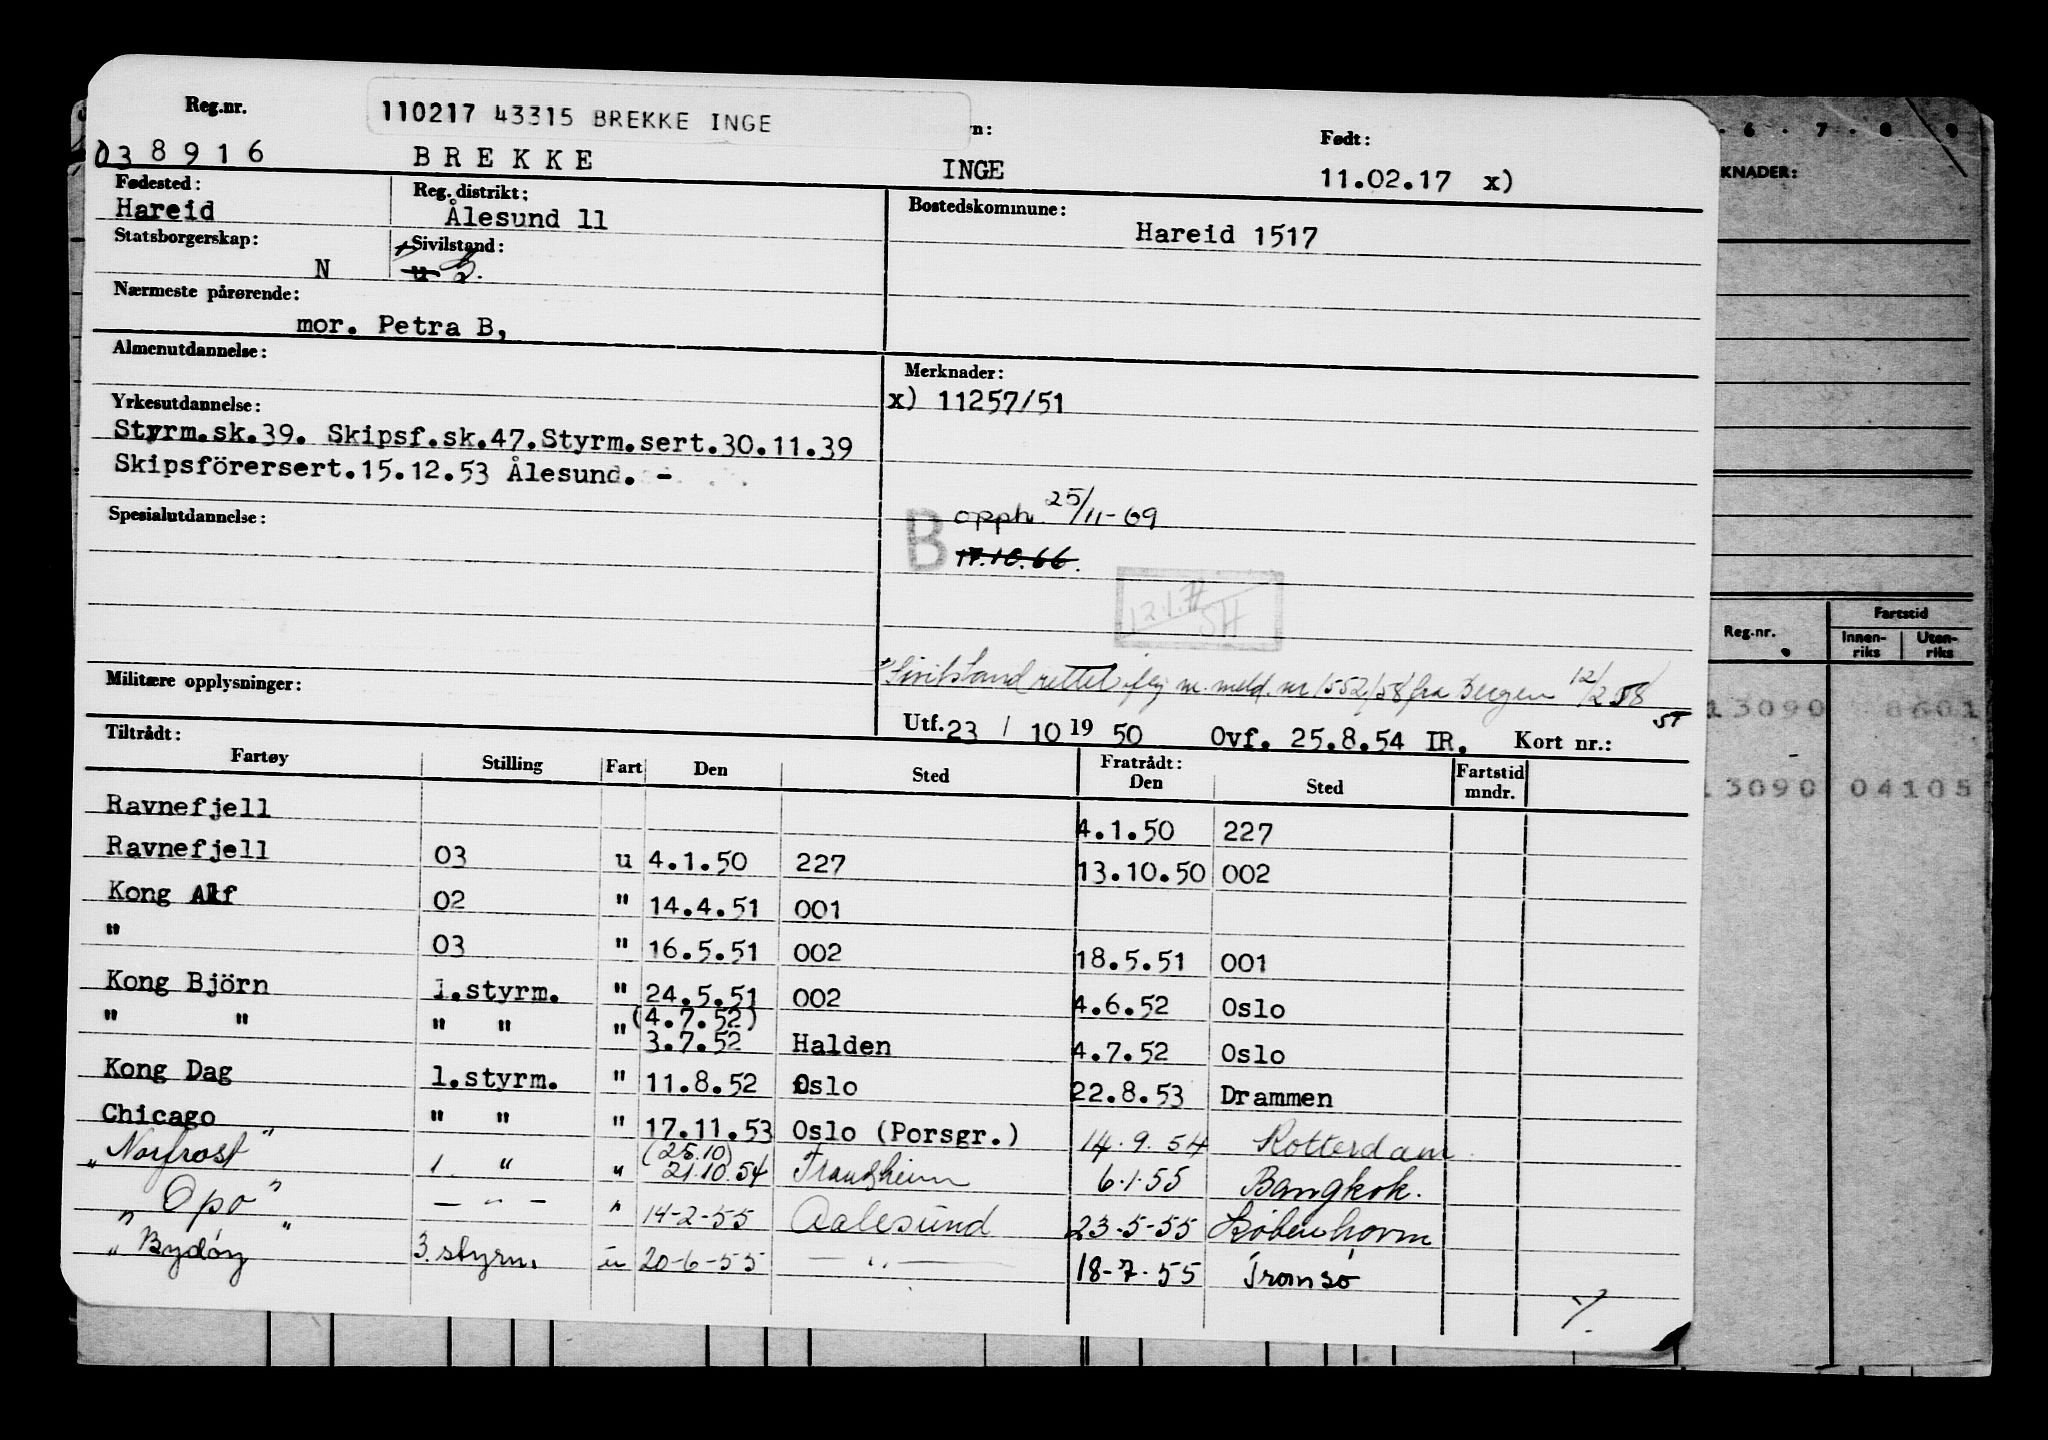 Reg.nr.
110217 43315 BREKKE INGE
Født:
038916 BREKKE INGE 11.02.17 x)
Fødested: Reg. distrikt: Bostedskommune:
Hareid Ålesund 11 Hareid 1517
Statsborgerskap: Sivilstand:
N u
Nærmeste pårørende:
mor. Petra B,
Almenutdannelse: Merknader:
x) 11257/51
Yrkesutdannelse:
Styrm.sk.39. Skipsf.sk.47.Styrm.sert.30.11.39
Skipsförersert.15.12.53 Ålesund. -
Spesialutdannelse:
B opph. 25/11-69
17.10.66.
Sivilstand rettet iflg m. meld. nr. 1552/58 fra Bergen 12/2 58
ST
Militære opplysninger:
Utf. 23 / 10 19 50 Ovf. 25.8.54 IR. Kort nr.:
Tiltrådt: Fratrådt:
Fartøy Stilling Fart Den Sted Den Sted Fartstid mndr.
Ravnefjell 4.1.50 227
Ravnefjell 03 u 4.1.50 227 13.10.50 002
Kong Alf 02 " 14.4.51 001
" 03 " 16.5.51 002 18.5.51 001
Kong Björn 1.styrm. " 24.5.51 002 4.6.52 Oslo
(4.7.52)
" " " " " 3.7.52 Halden 4.7.52 Oslo
Kong Dag 1.styrm. " 11.8.52 Oslo 22.8.53 Drammen
Chicago " " " 17.11.53 Oslo (Porsgr.) 14.9.54 Rotterdam
(25.10)
"Norfrost" 1. " " 21.10.54 Trondheim 6.1.55 Bangkok.
"Opo" — " — " 14-2-55 Aalesund 23.5-55 København
"Bygdøy" 3.styrm. u 20-6-55 — " — 18-7-55 Tromsø
6 . 7 . 8 . 9
KNADER:
Reg.nr. Fartstid
Innen-riks Uten-riks
13090 8601
13090 04105